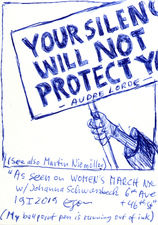 YOUR SILEN
WILL NOT
PROTECT YO
- AUDRE LORDE -
(See also Martin Niemöller)
"AS SEEN ON WOMEN'S MARCH NYC
w/ Johanna
6th Ave
19 I 2019
+ 46th St"
(My ballpoint pen is running out of ink)